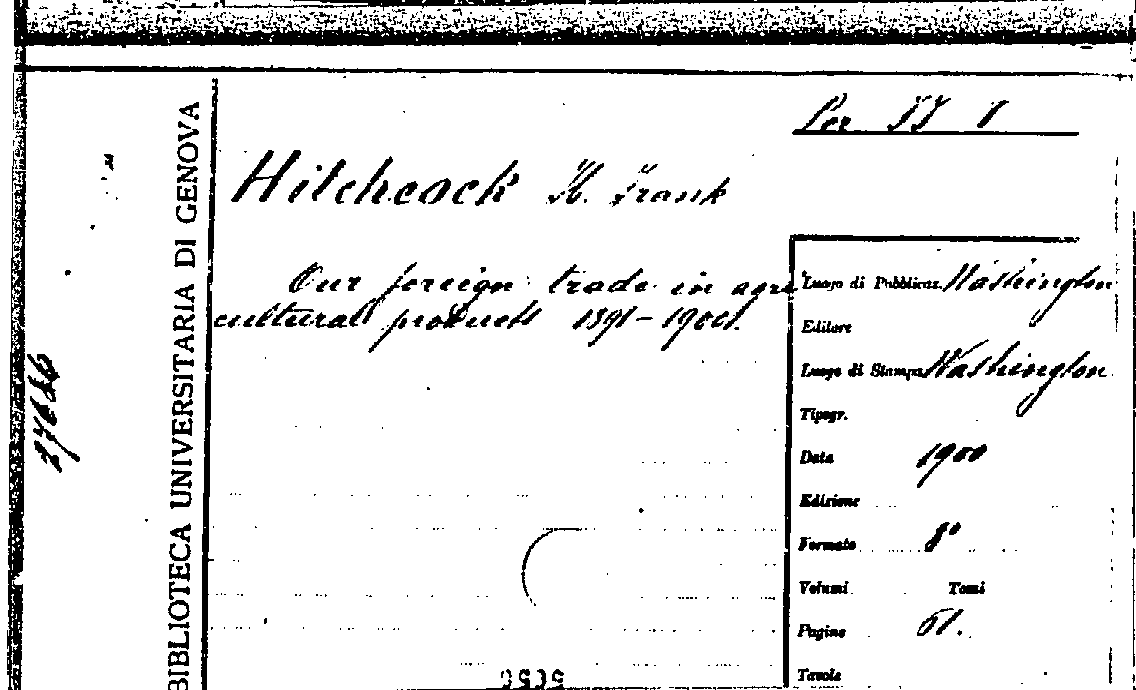 Per
Hitchcock H. Frank
Our foreign trade in agri
cultural products 1891-1900.
Luogo di Pubblicaz. Washington
Editore
Luogo di Stampa Washington
Tipogr.
Data 1900
Edizione
Formato 8°
Volumi Tomi
Pagine 61.
Tavole
BIBLIOTECA UNIVERSITARIA DI GENOVA
27636